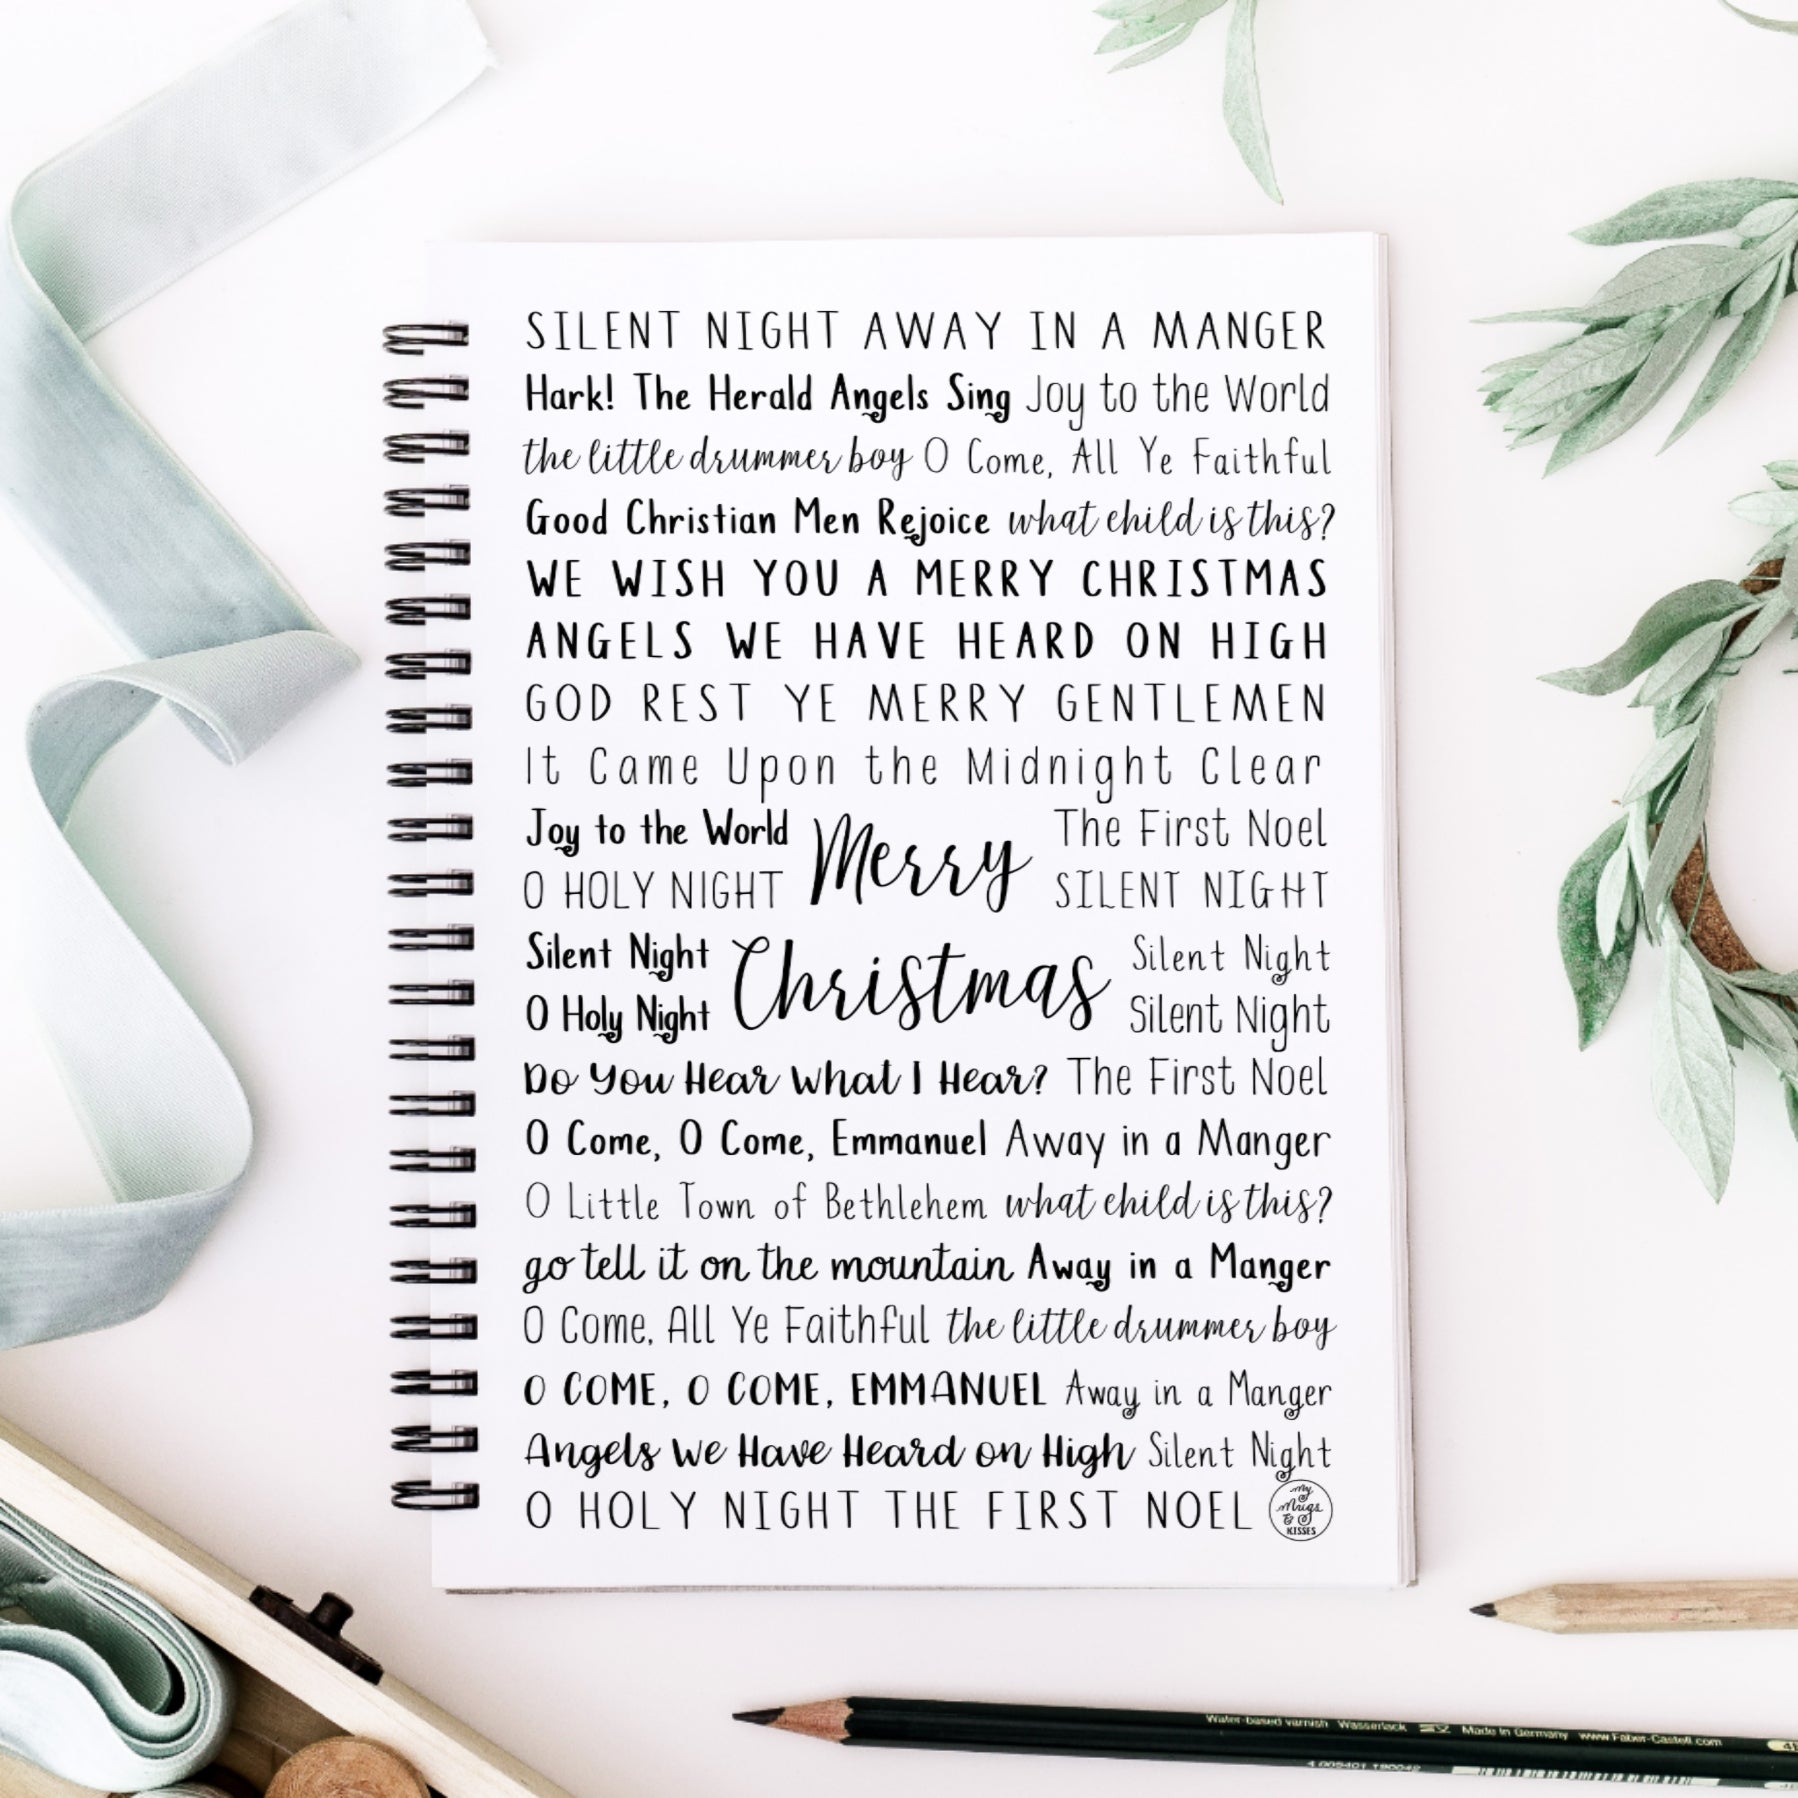 SILENT NIGHT AWAY IN A MANGER
Hark! The Herald Angels Sing Joy to the World
the little drummer boy O Come, All Ye Faithful
Good Christian Men Rejoice what child is this?
WE WISH YOU A MERRY CHRISTMAS
ANGELS WE HAVE HEARD ON HIGH
GOD REST YE MERRY GENTLEMEN
It Came Upon the Midnight Clear
Joy to the World
O HOLY NIGHT
Merry
The First Noel
SILENT NIGHT
Silent Night
O Holy Night
Christmas
Silent Night
Silent Night
Do You Hear What I Hear? The First Noel
O Come, O Come, Emmanuel Away in a Manger
O Little Town of Bethlehem what child is this?
go tell it on the mountain Away in a Manger
O Come, All Ye Faithful the little drummer boy
O COME, O COME, EMMANUEL Away in a Manger
Angels We Have Heard on High Silent Night
O HOLY NIGHT THE FIRST NOEL
my
Mugs
&
KISSES
Water-based varnish Wasserlack Made in Germany www.Faber-Castell.com